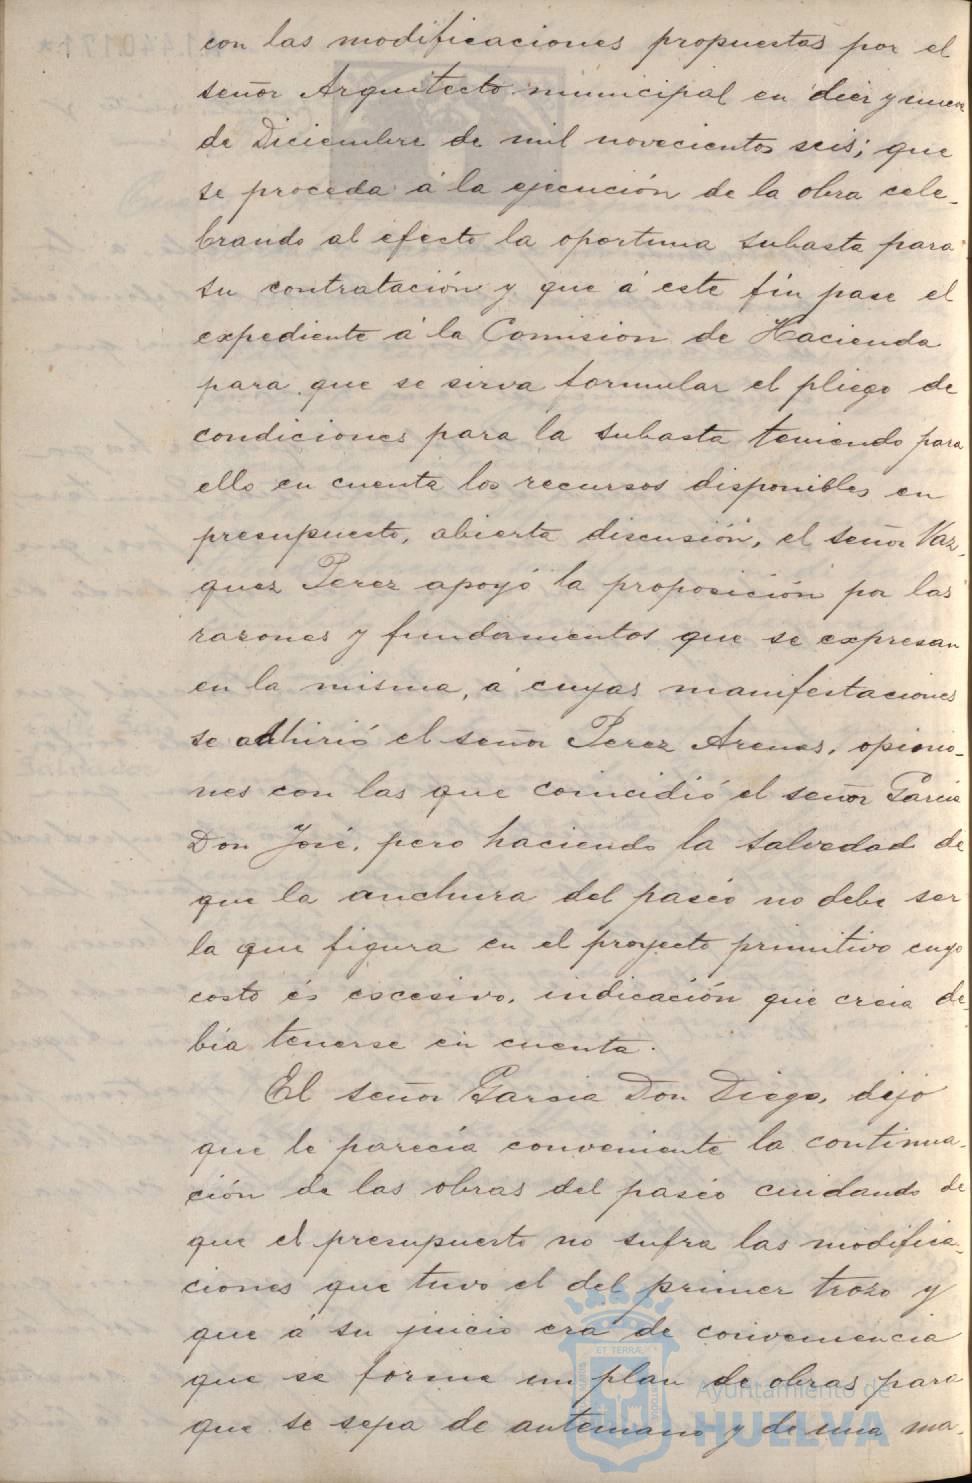 con las modificaciones propuestas por el
señor Arquitecto municipal en diez y nueve
de Diciembre de mil novecientos seis; que
se proceda á la ejecución de la obra cele-
brando al efecto la oportuna subasta para
su contratación y que á este fin pase el
expediente á la Comision de Hacienda
para que se sirva formular el pliego de
condiciones para la subasta teniendo para
ello en cuenta los recursos disponibles en
presupuesto, abierta discusión, el señor Vaz-
quez Perez apoyó la proposición por las
razones y fundamentos que se expresan
en la misma, á cuyas manifestaciones
se adhirió el señor Perez Arenas, opinio-
nes con las que coincidió el señor Garcia
Don José, pero haciendo la salvedad de
que la anchura del paséo no debe ser
la que figura en el proyecto primitivo cuyo
costo és escesivo, indicación que creia de-
bía tenerse en cuenta.
El señor Garcia Don Diego, dijo
que le parecía conveniente la continua-
ción de las obras del paséo cuidando de
que el presupuesto no sufra las modifica-
ciones que tuvo el del primer trozo y
que á su juicio era de conveniencia
que se forme un plan de obras para
que se sepa de antemano y de una ma-
ET TERRÆ
Ayuntamiento de
HUELVA